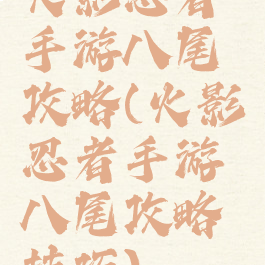 火影忍者
手游八尾
攻略(火影
忍者手游
八尾攻略
技巧)